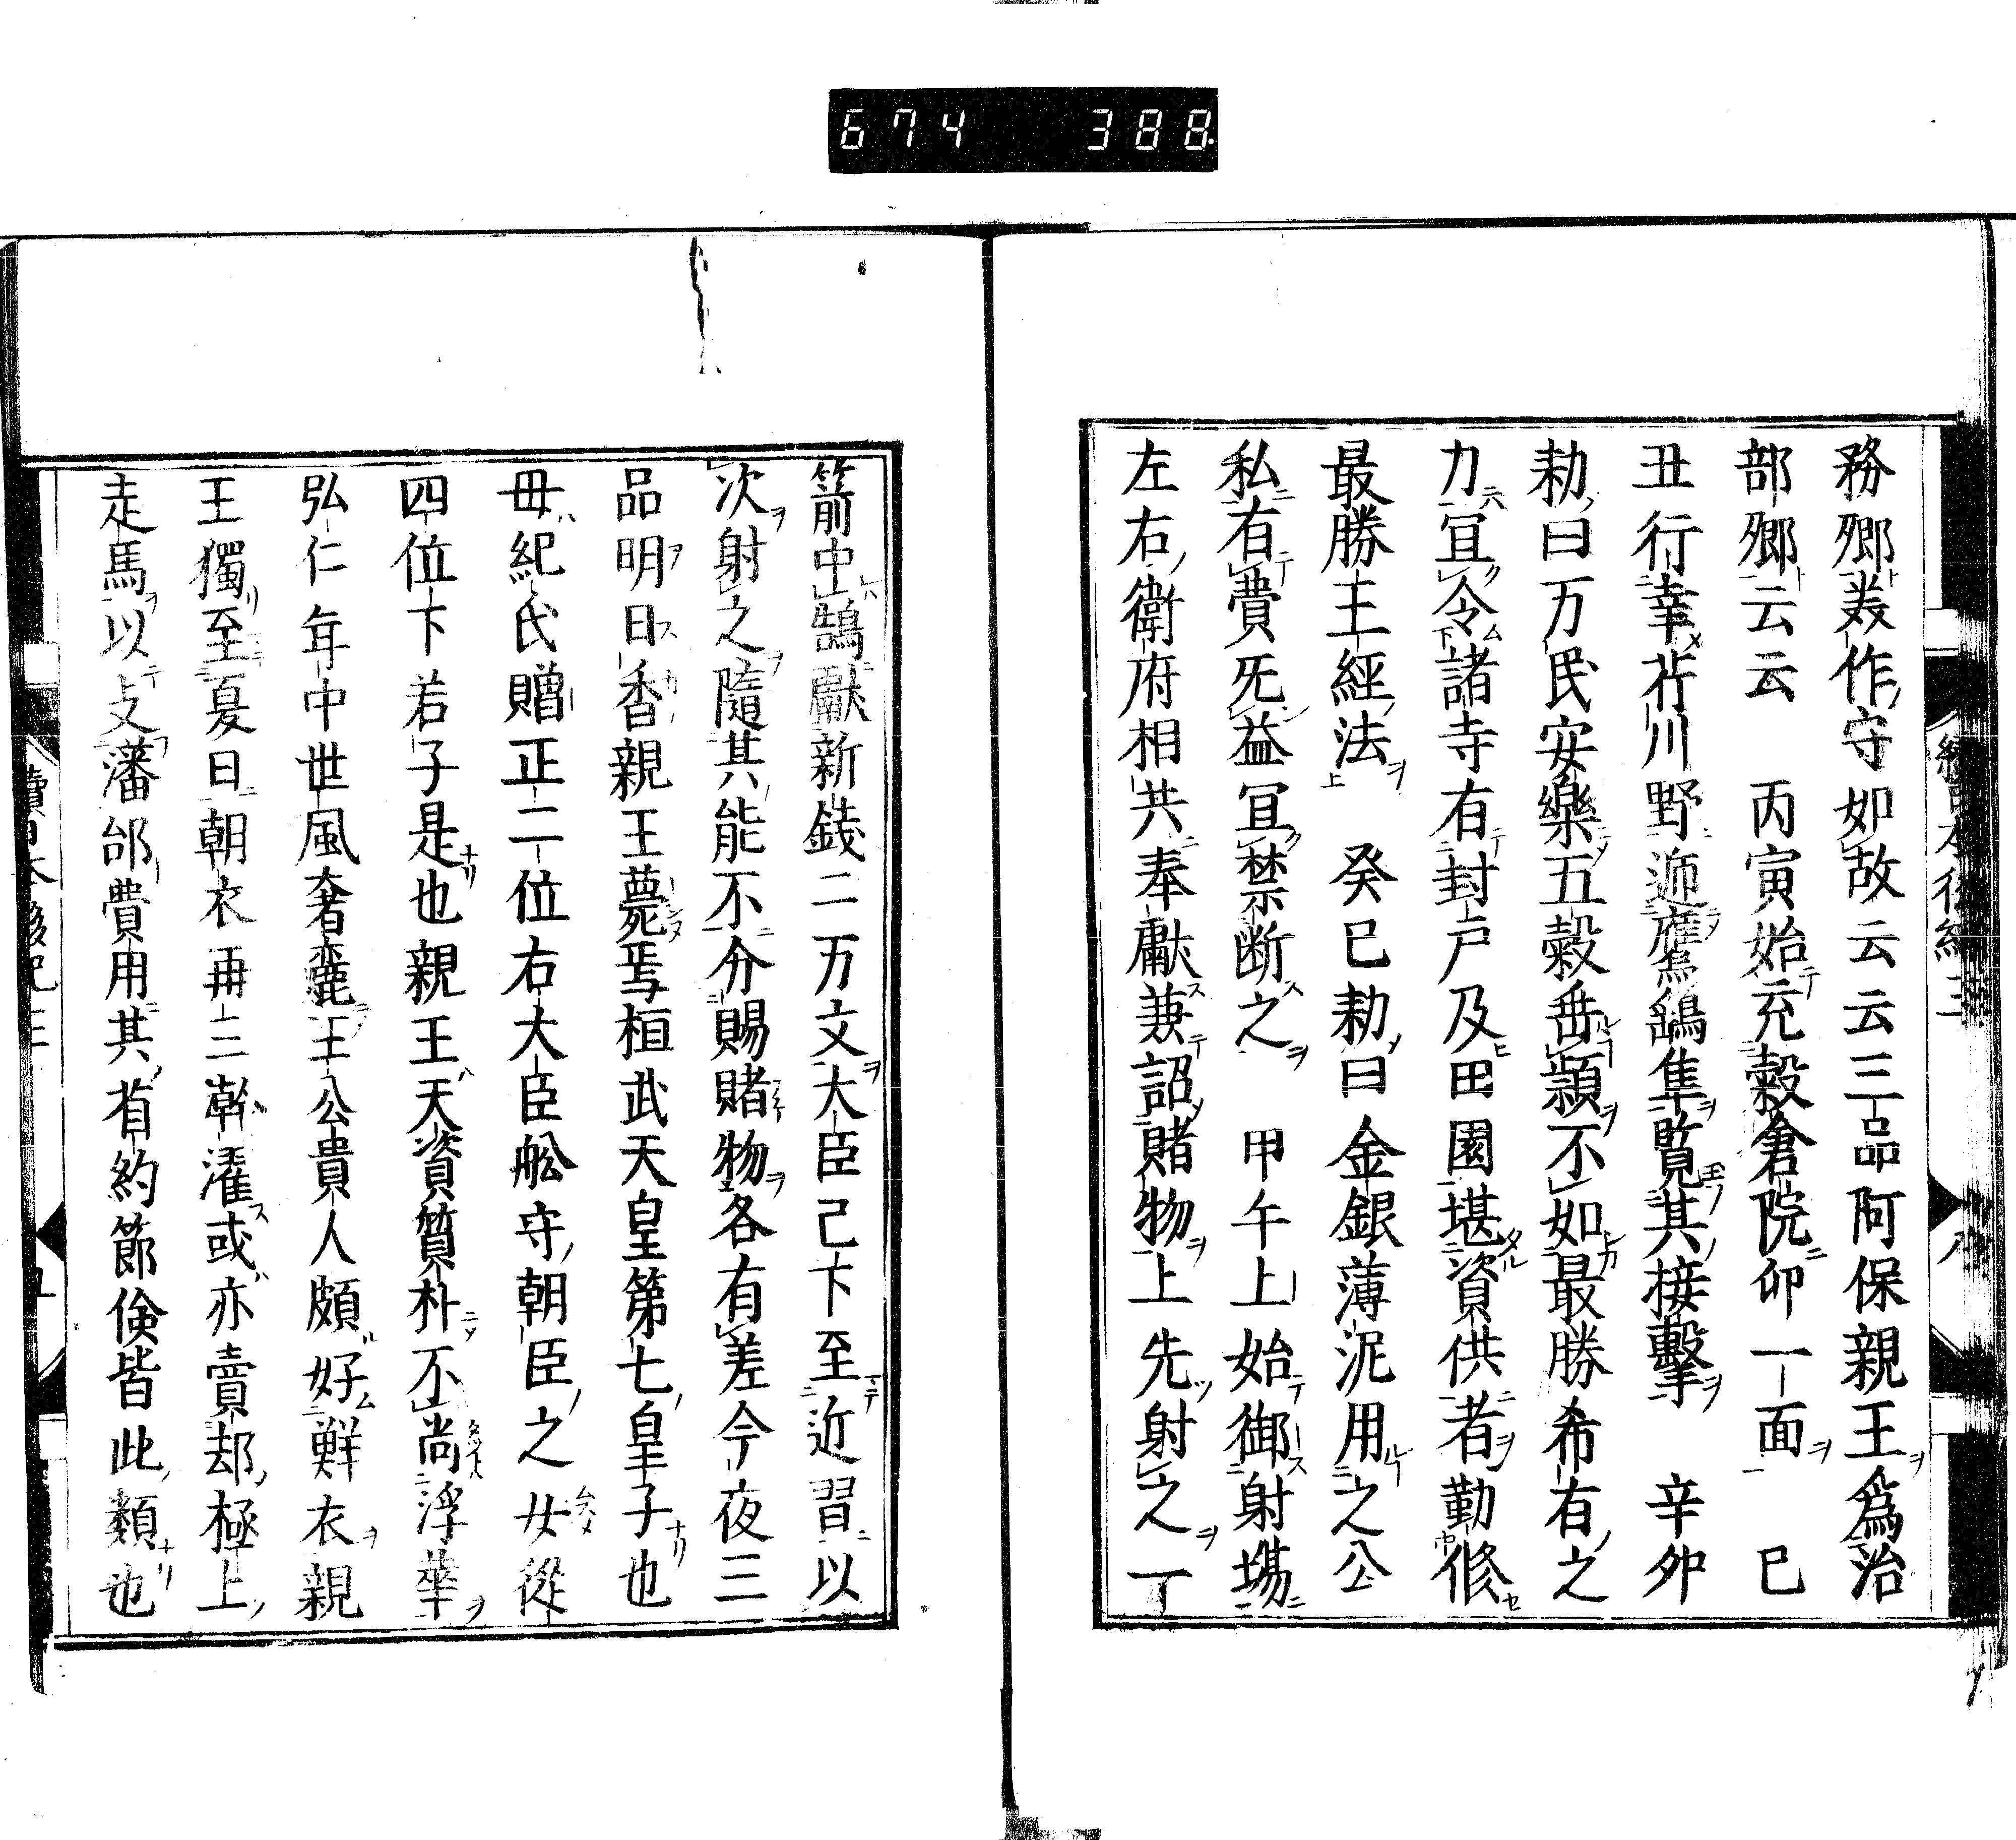 674 388
務卿美作守如故云云三品阿保親王爲治
部卿云云 丙寅始充穀倉院印一面 巳
丑行幸芹川野遊鷹鷂隼覧其接擊 辛卯
勅曰万民安樂五穀垂頴不如最勝希有之
力宜令諸寺有封戸及田園堪資供者勤修
最勝王經法 癸巳勅曰金銀薄泥用之公
私有費旡益宜禁断之 甲午上始御射塲
左右衛府相共奉獻兼詔賭物上先射之一
箭中鵠獻新錢二万文大臣已下至近習以
次射之隨其能不分賜賭物各有差今夜三
品明日香親王薨焉桓武天皇第七皇子也
毋紀氏贈正二位右大臣舩守朝臣之女從
四位下若子是也親王天資質朴不尚浮華
弘仁年中世風奢麗王公貴人頗好鮮衣親
王獨至夏日朝衣再三澣濯或亦賣却極上
走馬以攴藩邸費用其省約節儉皆此類也